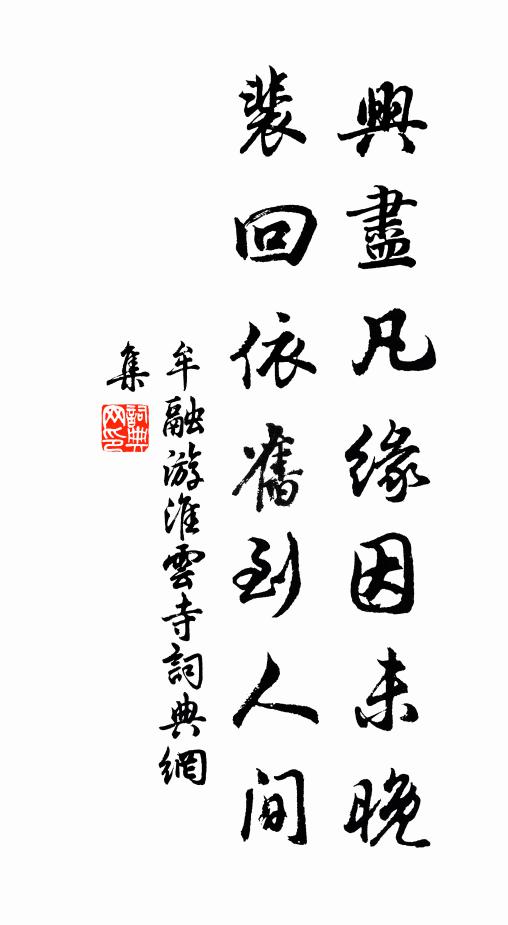 興盡凡緣因未晚
裴回依舊到人间
牟融游淮雲寺詞典網
集
詞典网印